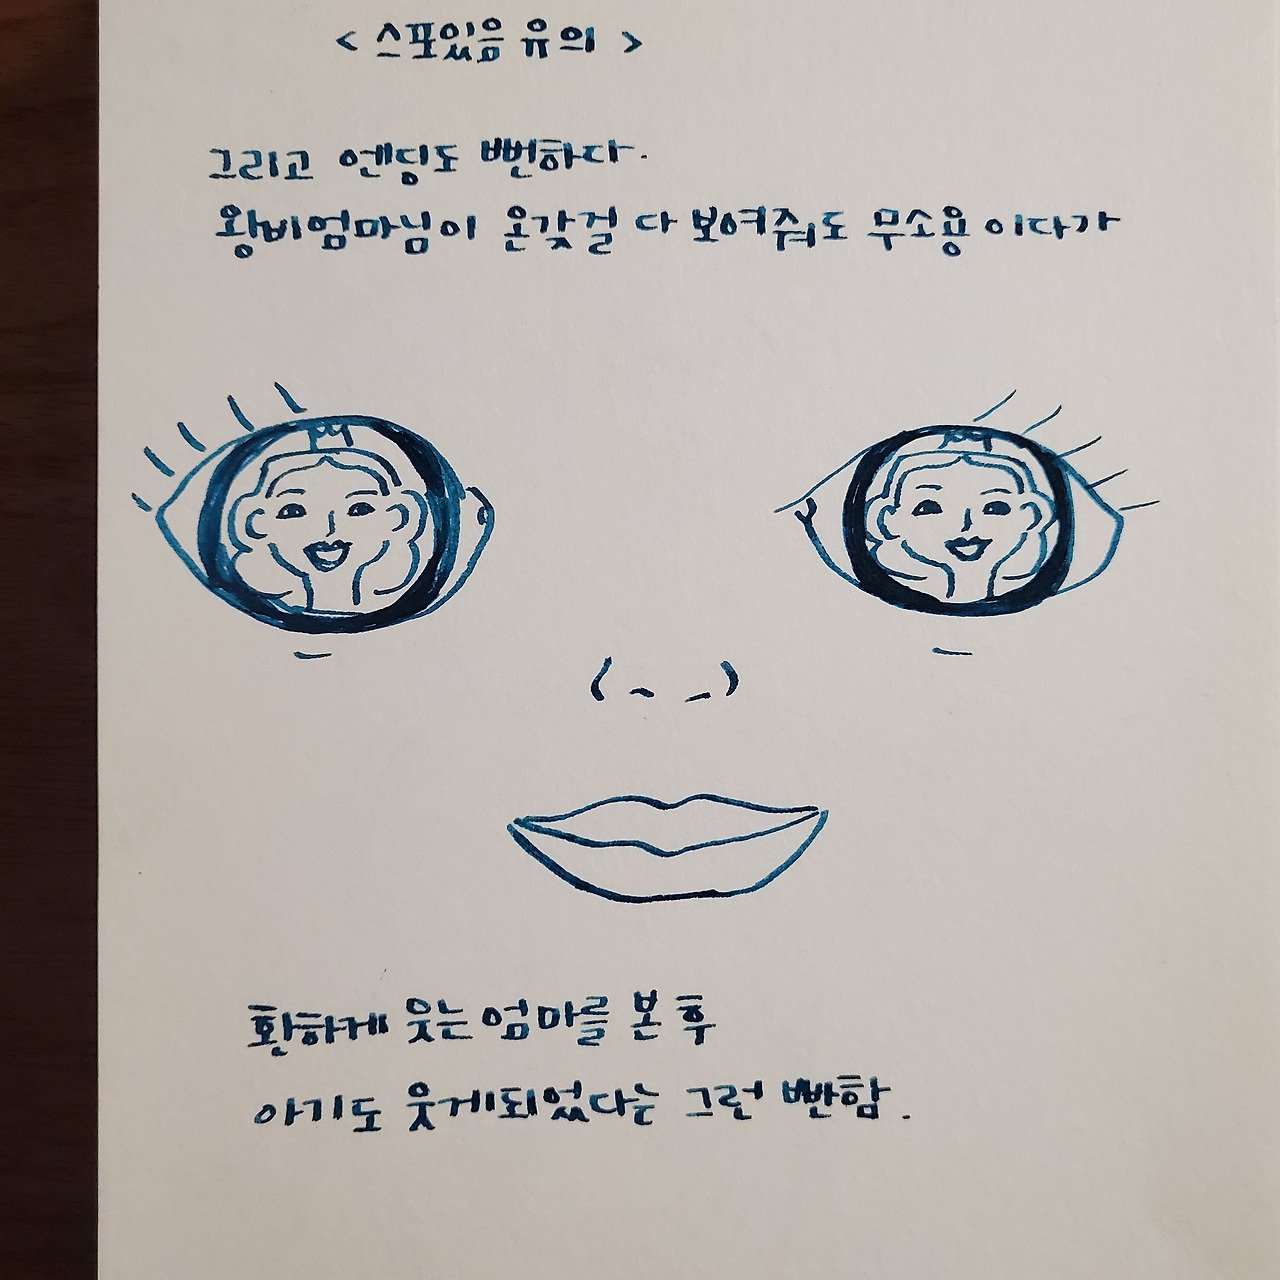 < 스포있음 유의 >
그리고 엔딩도 뻔하다.
왕비엄마님이 온갖걸 다 보여줘도 무소용이다가
환하게 웃는 엄마를 본 후
아기도 웃게되었다는 그런 뻔함.